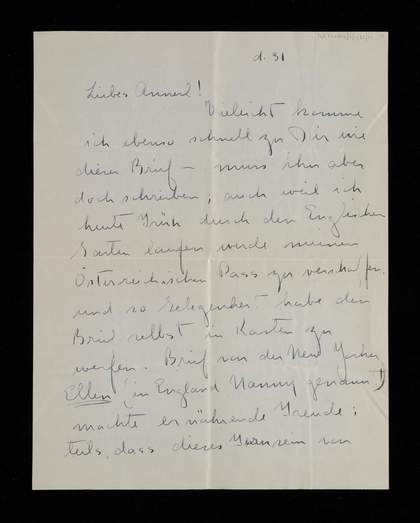 d. 31
Liebes Annerl!
Vieleicht komme
ich ebenso schnell zu Dir wie
dieser Brief – muss ihn aber
doch schreiben; auch weil ich
heute Früh durch den Englischen
Garten laufen werde meinen
Österreichischen Pass zu verschaffen,
und so Gelegenheit habe den
Brief selbst in Kasten zu
werfen. Brief von der New Yorker
Ellen (in England Nanny genannt)
machte er nährende Freude:
teils, dass dieses von